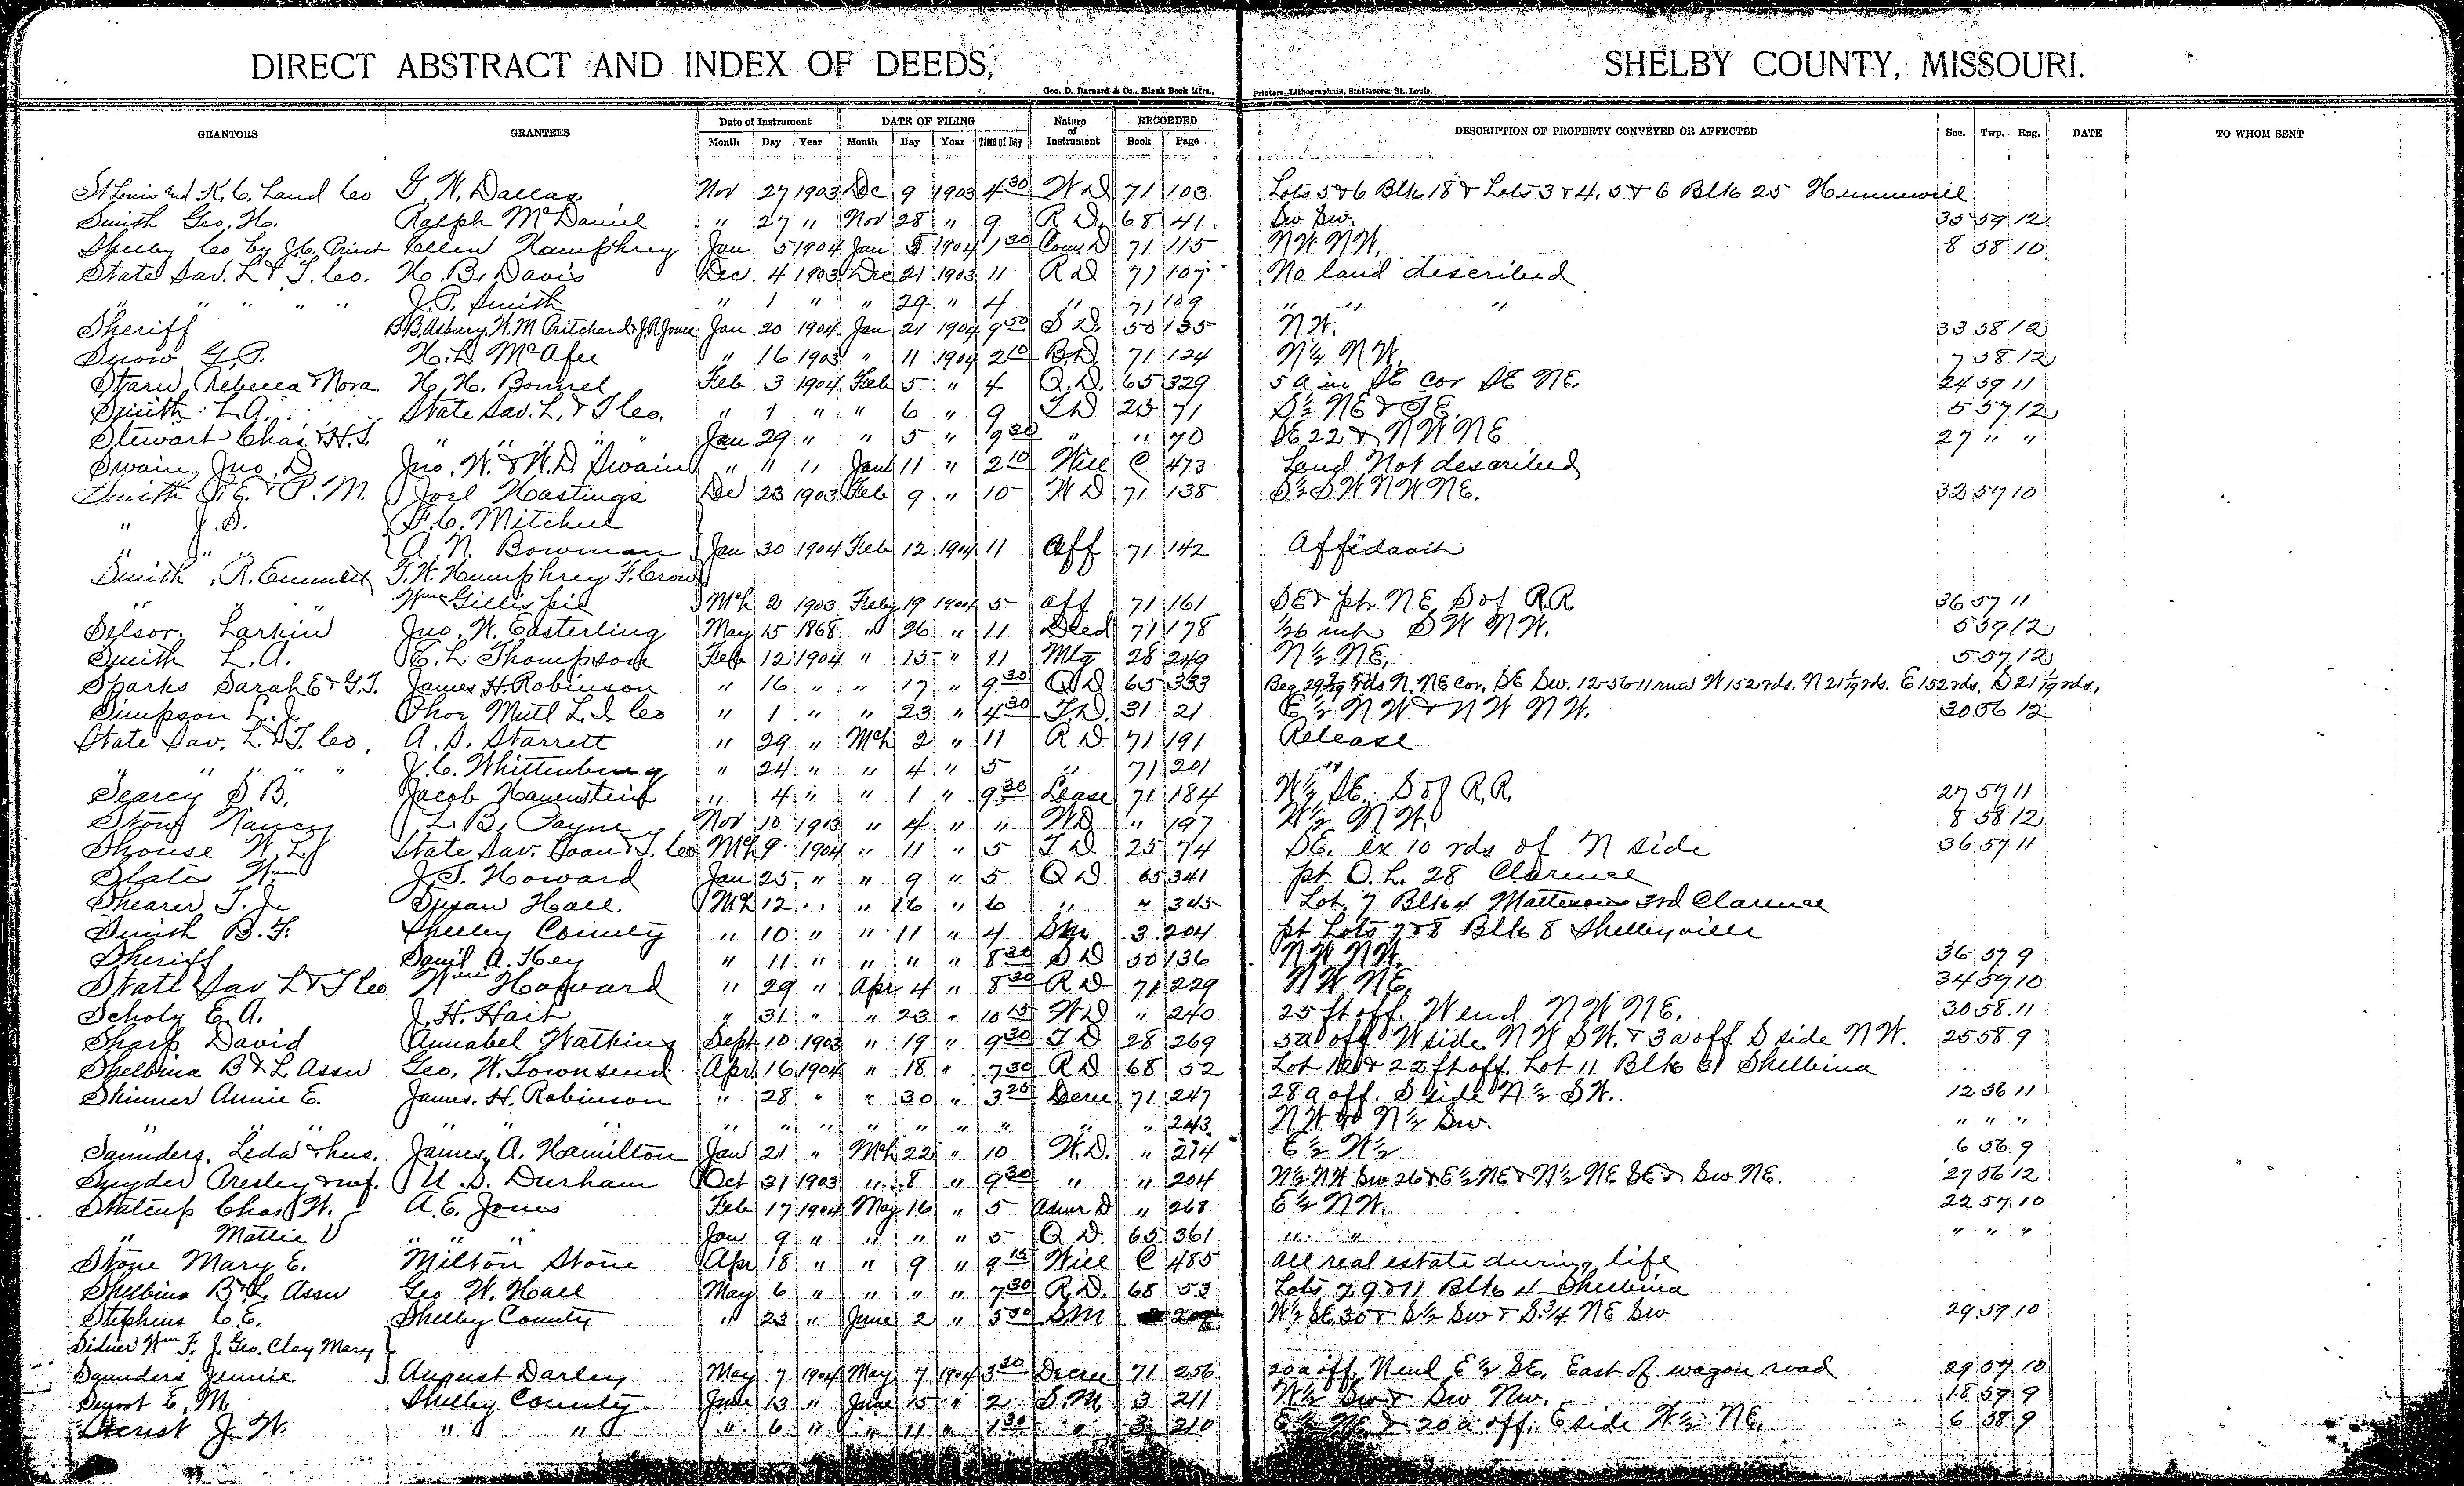 DIRECT ABSTRACT AND INDEX OF DEEDS, SHELBY COUNTY, MISSOURI.
Geo. D. Barnard & Co., Blank Book Mfrs., Printers, Lithographers, Stationers, St. Louis.
GRANTORS GRANTEES Date of Instrument DATE OF FILING Nature of Instrument RECORDED DESCRIPTION OF PROPERTY CONVEYED OR AFFECTED Sec. Twp. Rng. DATE TO WHOM SENT
Month Day Year Month Day Year Time of Day Book Page
St Louis and K. C. Land Co G. W. Dallas Nov 27 1903 Dec 9 1903 4 30 W D 71 103 Lots 5 & 6 Blk 18 & Lots 3 & 4, 5 & 6 Blk 25 Hunnewell
Smith Geo. H. Ralph McDaniel " 27 " Nov 28 " 9 R D. 68 41 Sw Sw. 35 59 12
Shelby Co by J. C. Priest Ellen Humphrey Jan 5 1904 Jan 5 1904 1 30 Com. D 71 115 NW NW. 8 58 10
State Sav. L & T. Co. H. B. Davis Dec 4 1903 Dec 21 1903 11 R D 71 107 No land described
" " " " " J. P. Smith " 1 " " 29 " 4 " 71 109 " " "
Sheriff B. B. Asbury, W. M. Pritchard & J. R. Jones Jan 20 1904 Jan 21 1904 9 30 S D. 50 135 NW. 33 58 12
Snow G. P. H. L. McAfee " 16 1903 " 11 1904 2 10 B. D. 71 124 N½ NW. 7 58 12
Rebecca & Nora. H. H. Bonnel Feb 3 1904 Feb 5 " 4 Q. D. 65 329 5 a in SE cor SE NE. 24 59 11
Smith L. A. State Sav. L. & T Co. " 1 " " 6 " 9 T D 25 71 S½ NE & SE. 5 57 12
Stewart Chas. & H. T. " " " " " Jan 29 " " 5 " 9 30 " " 70 SE 22 & NW NE 27 " "
Swain, Jno. D. Jno. W. & W. D. Swain " 11 " Jan 11 " 2 10 Will C 473 Land Not described
Smith R. E. & P. M. Joel Hastings Dec 23 1903 Feb 9 " 10 W D 71 138 S½ SW NW NE. 32 57 10
" J. S. F. C. Mitchel
" " " A. N. Bowman Jan 30 1904 Feb 12 1904 11 Aff 71 142 Affidavit
Smith, R. Emmett G. W. Humphrey F. Crow
" " " Wm Gillispie Mch 2 1903 Feby 19 1904 5 Aff 71 161 SE & pt NE S of R.R. 36 57 11
Selsor. Larkin Jno. W. Easterling May 15 1868 " 26 " 11 Deed 71 178 1/26 int SW NW. 5 59 12
Smith L. A. E. L Thompson Feb 12 1904 " 15 " 11 Mtg 28 249 N½ NE. 5 57 12
Sparks Sarah E & G. T. James H. Robinson " 16 " " 17 " 9 30 Q D 65 333 Beg 29 rds N. NE Cor. SE Sw. 12-56-11 runs W 152 rds. N 21 1/19 rds. E 152 rds, S 21 1/19 rds,
Simpson L. J. Phoe Mutl L. I. Co " 1 " " 23 " 4 30 T. D. 31 21 E½ NW & NW NW. 30 56 12
State Sav. L & T. Co, A. S. Starrett " 29 " Mch 2 " 11 R D 71 191 Release
" " " " " J. C. Whittenburg " 24 " " 4 " 5 " 71 201 "
Searcy S B. Jacob Hauenstein " 4 " " 1 " 9 30 Lease 71 184 W½ SE. S of R.R. 27 57 11
Stout Nancy L. B. Payne Nov 10 1903 " 4 " " W D " 197 W½ NW. 8 58 12
Shouse W. L. State Sav. Loan & T. Co Mch 9 1904 " 11 " 5 T D 25 74 SE. ex 10 rds of N side 36 57 11
Slater Wm J. T. Howard Jan 25 " " 9 " 5 Q D 65 341 pt O. L. 28 Clarence
Shearer T. J. Susan Hall. Mch 12 " " 16 " 6 " " 345 Lot 7 Blk 4 Mattesons 3rd Clarence
Smith B. F. Shelby County " 10 " " 11 " 4 Sm 3 204 pt Lots 7 & 8 Blk 8 Shelbyville
Sheriff Saml A. Key " 11 " " " " 8 30 S D 50 136 NW NW. 36 57 9
State Sav L & T Co Wm Howard " 29 " Apr 4 " 8 30 R D 71 229 NW NE. 34 59 10
Scholy E. A. J. H. Hart " 31 " " 23 " 10 15 W D " 240 25 ft off. W end NW NE. 30 58 11
Sharp David Annabel Watkins Sept 10 1903 " 19 " 9 30 T D 28 269 5a off W side NW SW. & 3 a off S side NW. 25 58 9
Shelbina B & L Assn Geo. W. Townsend Apr. 16 1904 " 18 " 7 30 R D 68 52 Lot 12 & 22 ft off Lot 11 Blk 31 Shelbina
Skinner Annie E. James. H. Robinson " 28 " " 30 " 3 25 Decree 71 247 28 a off. S side N½ SW. 12 56 11
" " " " " " " " " " " " " 243 N½ Sw. " " "
Saunders. Leda & hus. James A. Hamilton Jan 21 " Mch 22 " 10 W. D. " 214 E½ W½ 6 56 9
Snyder Presley & wf. U. S. Durham Oct 31 1903 " 8 " 9 30 " " 204 N½ NW Sw 26 & E½ NE & N½ NE SE & Sw NE. 27 56 12
Stalcup Chas W. A. E. Jones Feb 17 1904 May 16 " 5 Admr D " 268 E½ NW. 22 57 10
" Mattie V " " " Jan 9 " " " " 5 Q D 65 361 " " " " "
Stone Mary E. Milton Stone Apr 18 " " 9 " 9 15 Will C 485 all real estate during life
Shelbina B & L Assn Geo W. Hall May 6 " " " " 7 30 R. D. 68 53 Lots 7, 9 & 11 Blk 4 Shelbina
Stephens C. E. Shelby County " 23 " June 2 " 5 30 S M W½ SE 30 & S½ Sw & S ¾ NE Sw 29 59 10
Sidner Wm F. J. Geo. Clay Mary
Saunders Jennie August Darley May 7 1904 May 7 1904 3 30 Decree 71 256 20 a off, N end E½ SE. East of wagon road 29 57 10
E. M. Shelby County June 13 " June 15 " 2 S. M. 3 211 Sw & Sw Nw. 18 59 9
Secrist J. W. " " " 6 " " 11 " 1 30 " 3 210 E½ NE & 20 a off. E side W½ NE. 6 58 9